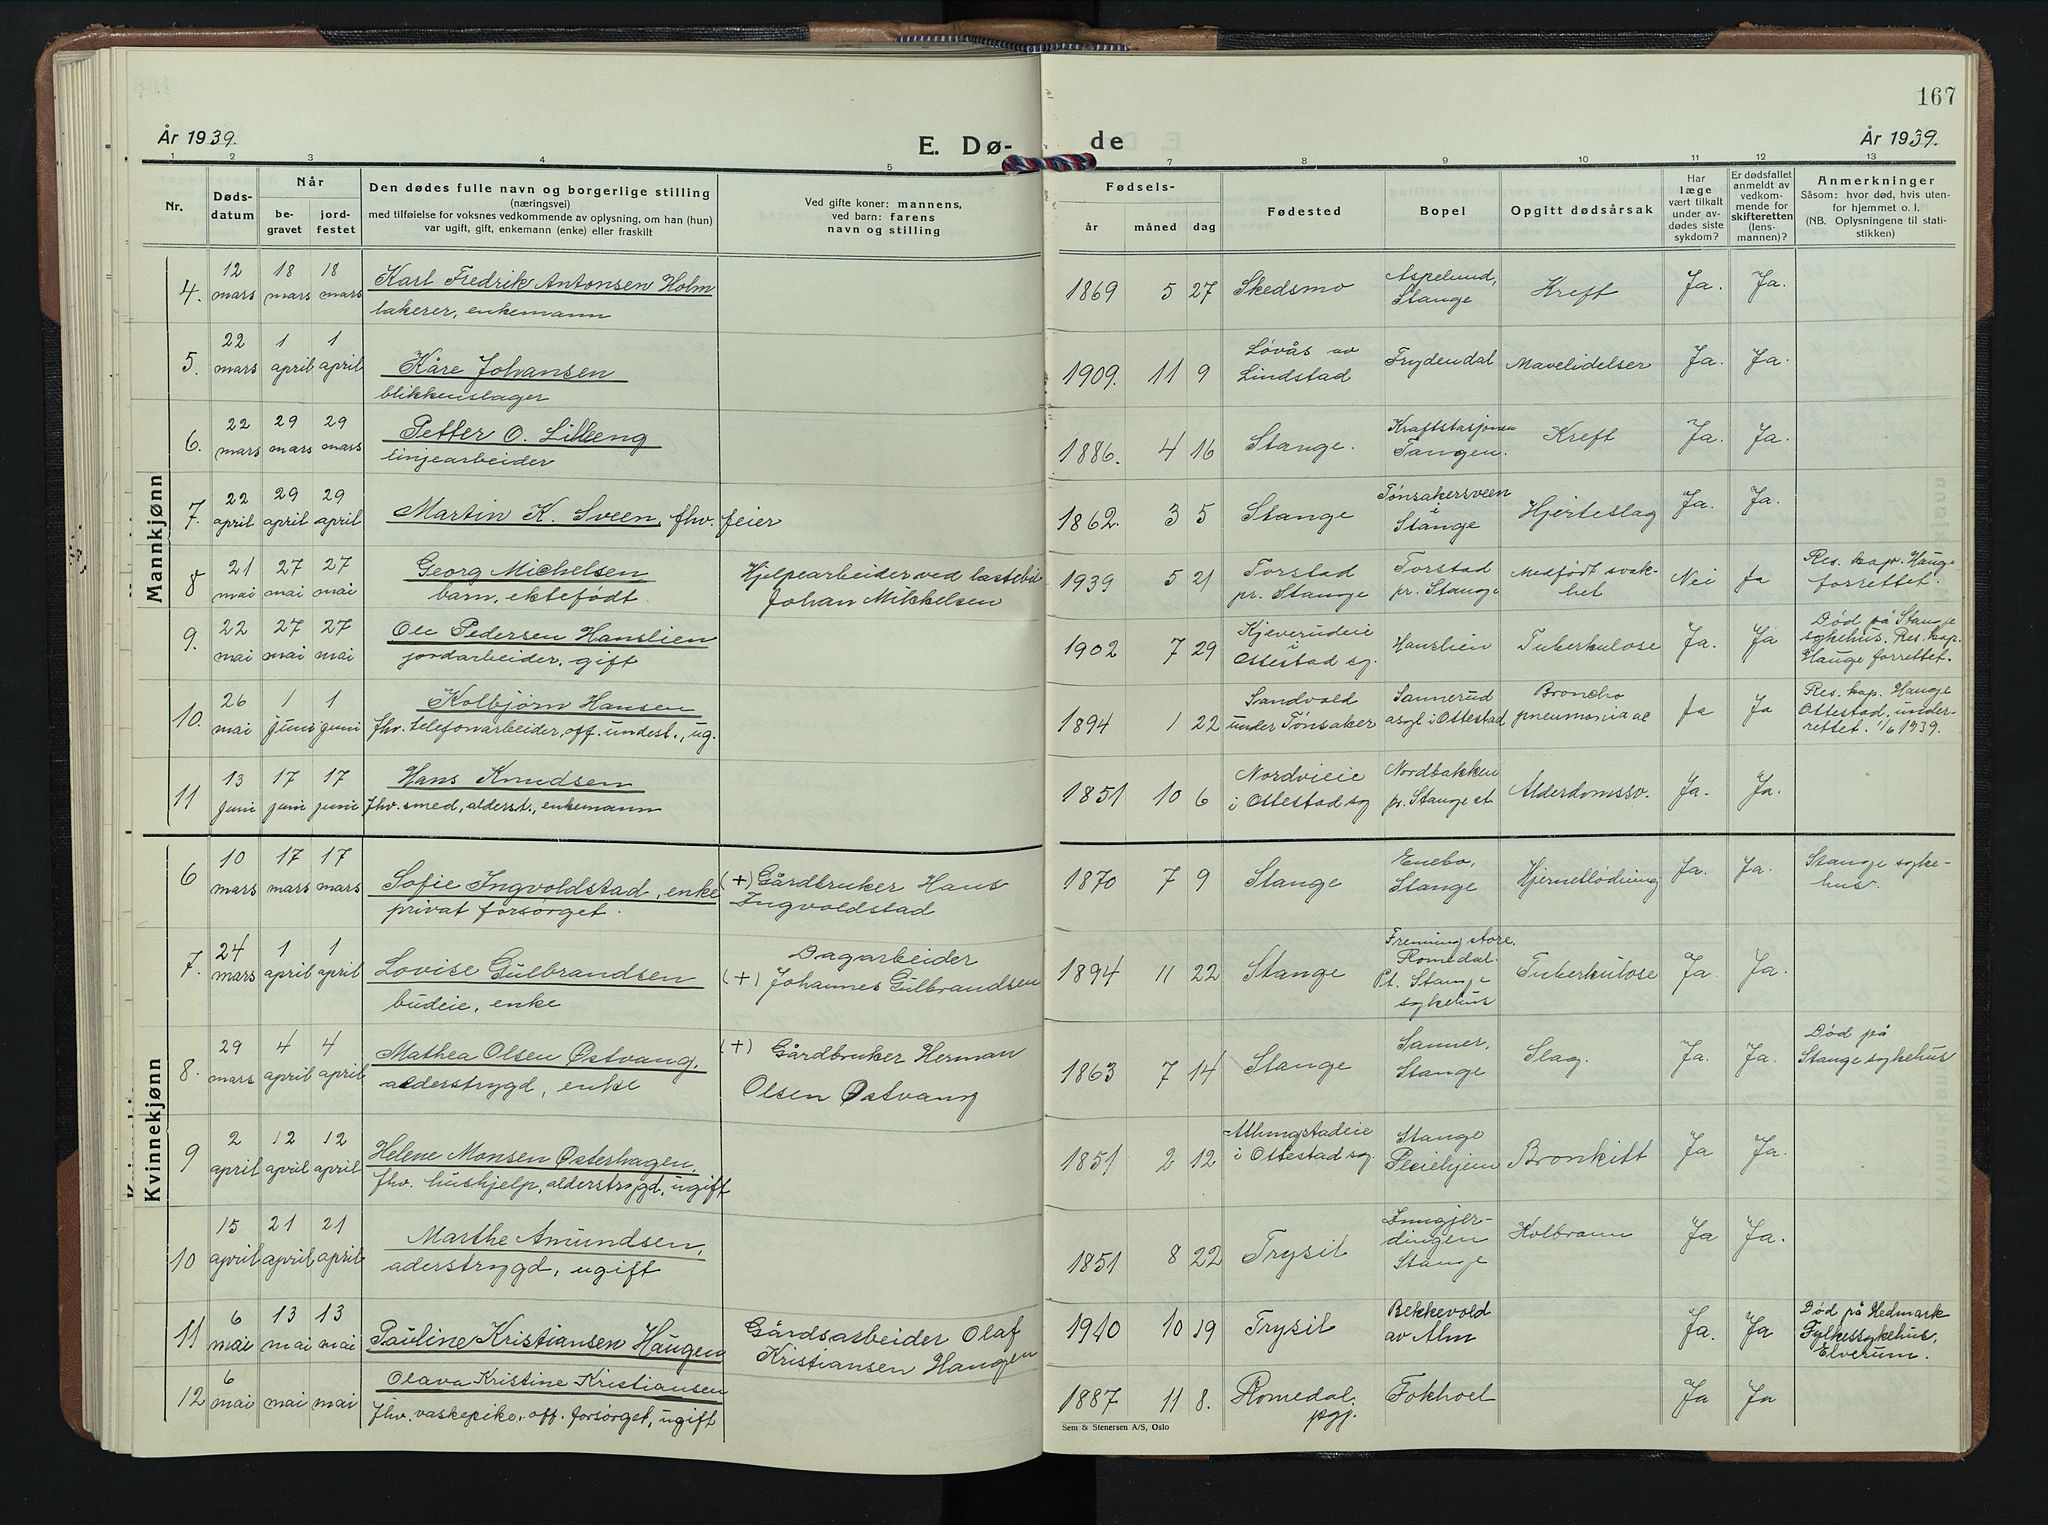 167
År 1939.
E. Dø-
de
År 1939.
1 2 3 4 5 7 8 9 10 11 12 13
Nr.
Døds-
datum
Når
be-
gravet
jord-
festet
Den dødes fulle navn og borgerlige stilling
(næringsvei)
med tilføielse for voksnes vedkommende av oplysning, om han (hun)
var ugift, gift, enkemann (enke) eller fraskilt
Ved gifte koner: mannens,
ved barn: farens
navn og stilling
Fødsels-
år måned dag
Fødested
Bopel
Opgitt dødsårsak
Har
læge
vært tilkalt
under av-
dødes siste
sykdom?
Er dødsfallet
anmeldt av
vedkom-
mende for
skifteretten
(lens-
mannen)?
Anmerkninger
Såsom: hvor død, hvis uten-
for hjemmet o. l.
(NB. Oplysningene til stati-
stikken)
Mannkjønn
4. 12 mars 18 mars 18 mars
Karl Fredrik Antonsen Holm
lakerer, enkemann
1869 5 27 Skedsmo
Aspelund,
Stange
Kreft Ja. Ja.
5. 22 mars 1 april 1 april
Kåre Johansen
blikkenslager
1909. 11 9
Løvås av
Lindstad
Frydendal Mavelidelser Ja. Ja.
6. 22 mars 29 mars 29 mars
Petter O. Lilleeng
linjearbeider
1886. 4 16 Stange.
Kraftstasjonen
Tangen.
Kreft Ja. Ja.
7. 22 april 29 april 29 april
Martin K. Sveen, fhv. feier
1862. 3 5 Stange
Tønsakersveen
i
Stange
Hjerteslag Ja. Ja.
8 21 mai 27 mai 27 mai
Georg Michelsen
barn, ektefødt.
Hjelpearbeider ved lastebil
Johan Mikkelsen
1939 5 21
Torstad
pr. Stange
Torstad
pr. Stange
Medfødt svak-
het
Nei Ja
Res. kap. Hauge
forrettet.
9. 22 mai 27 mai 27 mai
Ole Pedersen Hanslien
jordarbeider, gift
1902 7 29
Kjeverudeie
i
Ottestad sg.
Hanslien Tuberkulose Ja. Ja
Død på Stange
sykehus. Res. kap.
Hauge forrettet.
10. 26 mai 1 juni 1 juni
Kolbjørn Hansen
fhv. telefonarbeider, off. undest., ug.
1894 1 22
Sandvold
under Tønsaker
Sannerud
asyl i Ottestad
Broncho
pneumonia ac
Ja Ja
Res. kap. Hauge
Ottestad, under-
rettet! 1/6 1939.
11 13 juni 17 juni 17 juni
Hans Knudsen
fhv. smed, alderst., enkemann
1851 10 6
Nordvieie
i Ottestad sg
Nordbakken
pr. Stange st
Alderdomssv. Ja. Ja.
Kvinnekjønn
6 10 mars 17 mars 17 mars
Sofie Ingvoldstad, enke
privat forsørget.
(+) Gårdbruker Hans
Ingvoldstad
1870 7 9 Stange
Enebo,
Stange
Hjerneblødning Ja. Ja.
Stange syke-
hus.
7. 24 mars 1 april 1 april
Lovise Gulbrandsen
budeie, enke
Dagarbeider
(+) Johannes Gulbrandsen
1894 11 22 Stange
Frenning store,
Romedal.
Pt. Stange
sykehus
Tuberkulose Ja. Ja.
8. 29 mars 4 april 4 april
Mathea Olsen Østvang,
alderstrygd, enke
(+) Gårdbruker Herman
Olsen Østvang
1863 7 14 Stange
Sanner,
Stange
Slag. Ja. Ja.
Død på
Stange sykehus
9 2 april 12 april 12 april
Helene Monsen Østerhagen,
fhv. hushjelp, alderstrygd, ugift
1851 2 12
i Ottestad sg.
Stange
Pleiehjem
Bronkitt Ja Ja.
10 15 april 21 april 21 april
Marthe Amundsen,
aderstrygd, ugift
1851 8 22 Trysil
Inngjer-
dingen
Stange
Kolbrann Ja Ja.
11 6 mai 13 mai 13 mai
Pauline Kristiansen Haugen
Gårdsarbeider Olaf
Kristiansen Haugen
1910 10 19 Trysil
Bekkevold
av Alm
Ja. Ja
Død på Hedmark
Fylkessykehus,
Elverum.
12 6 mai mai mai
Olava Kristine Kristiansen
fhv. vaskepike, off. forsørget, ugift
1887 11 8.
Romedal
pgj.
Fokhoel Ja Ja
Sem & Stenersen A/S, Oslo